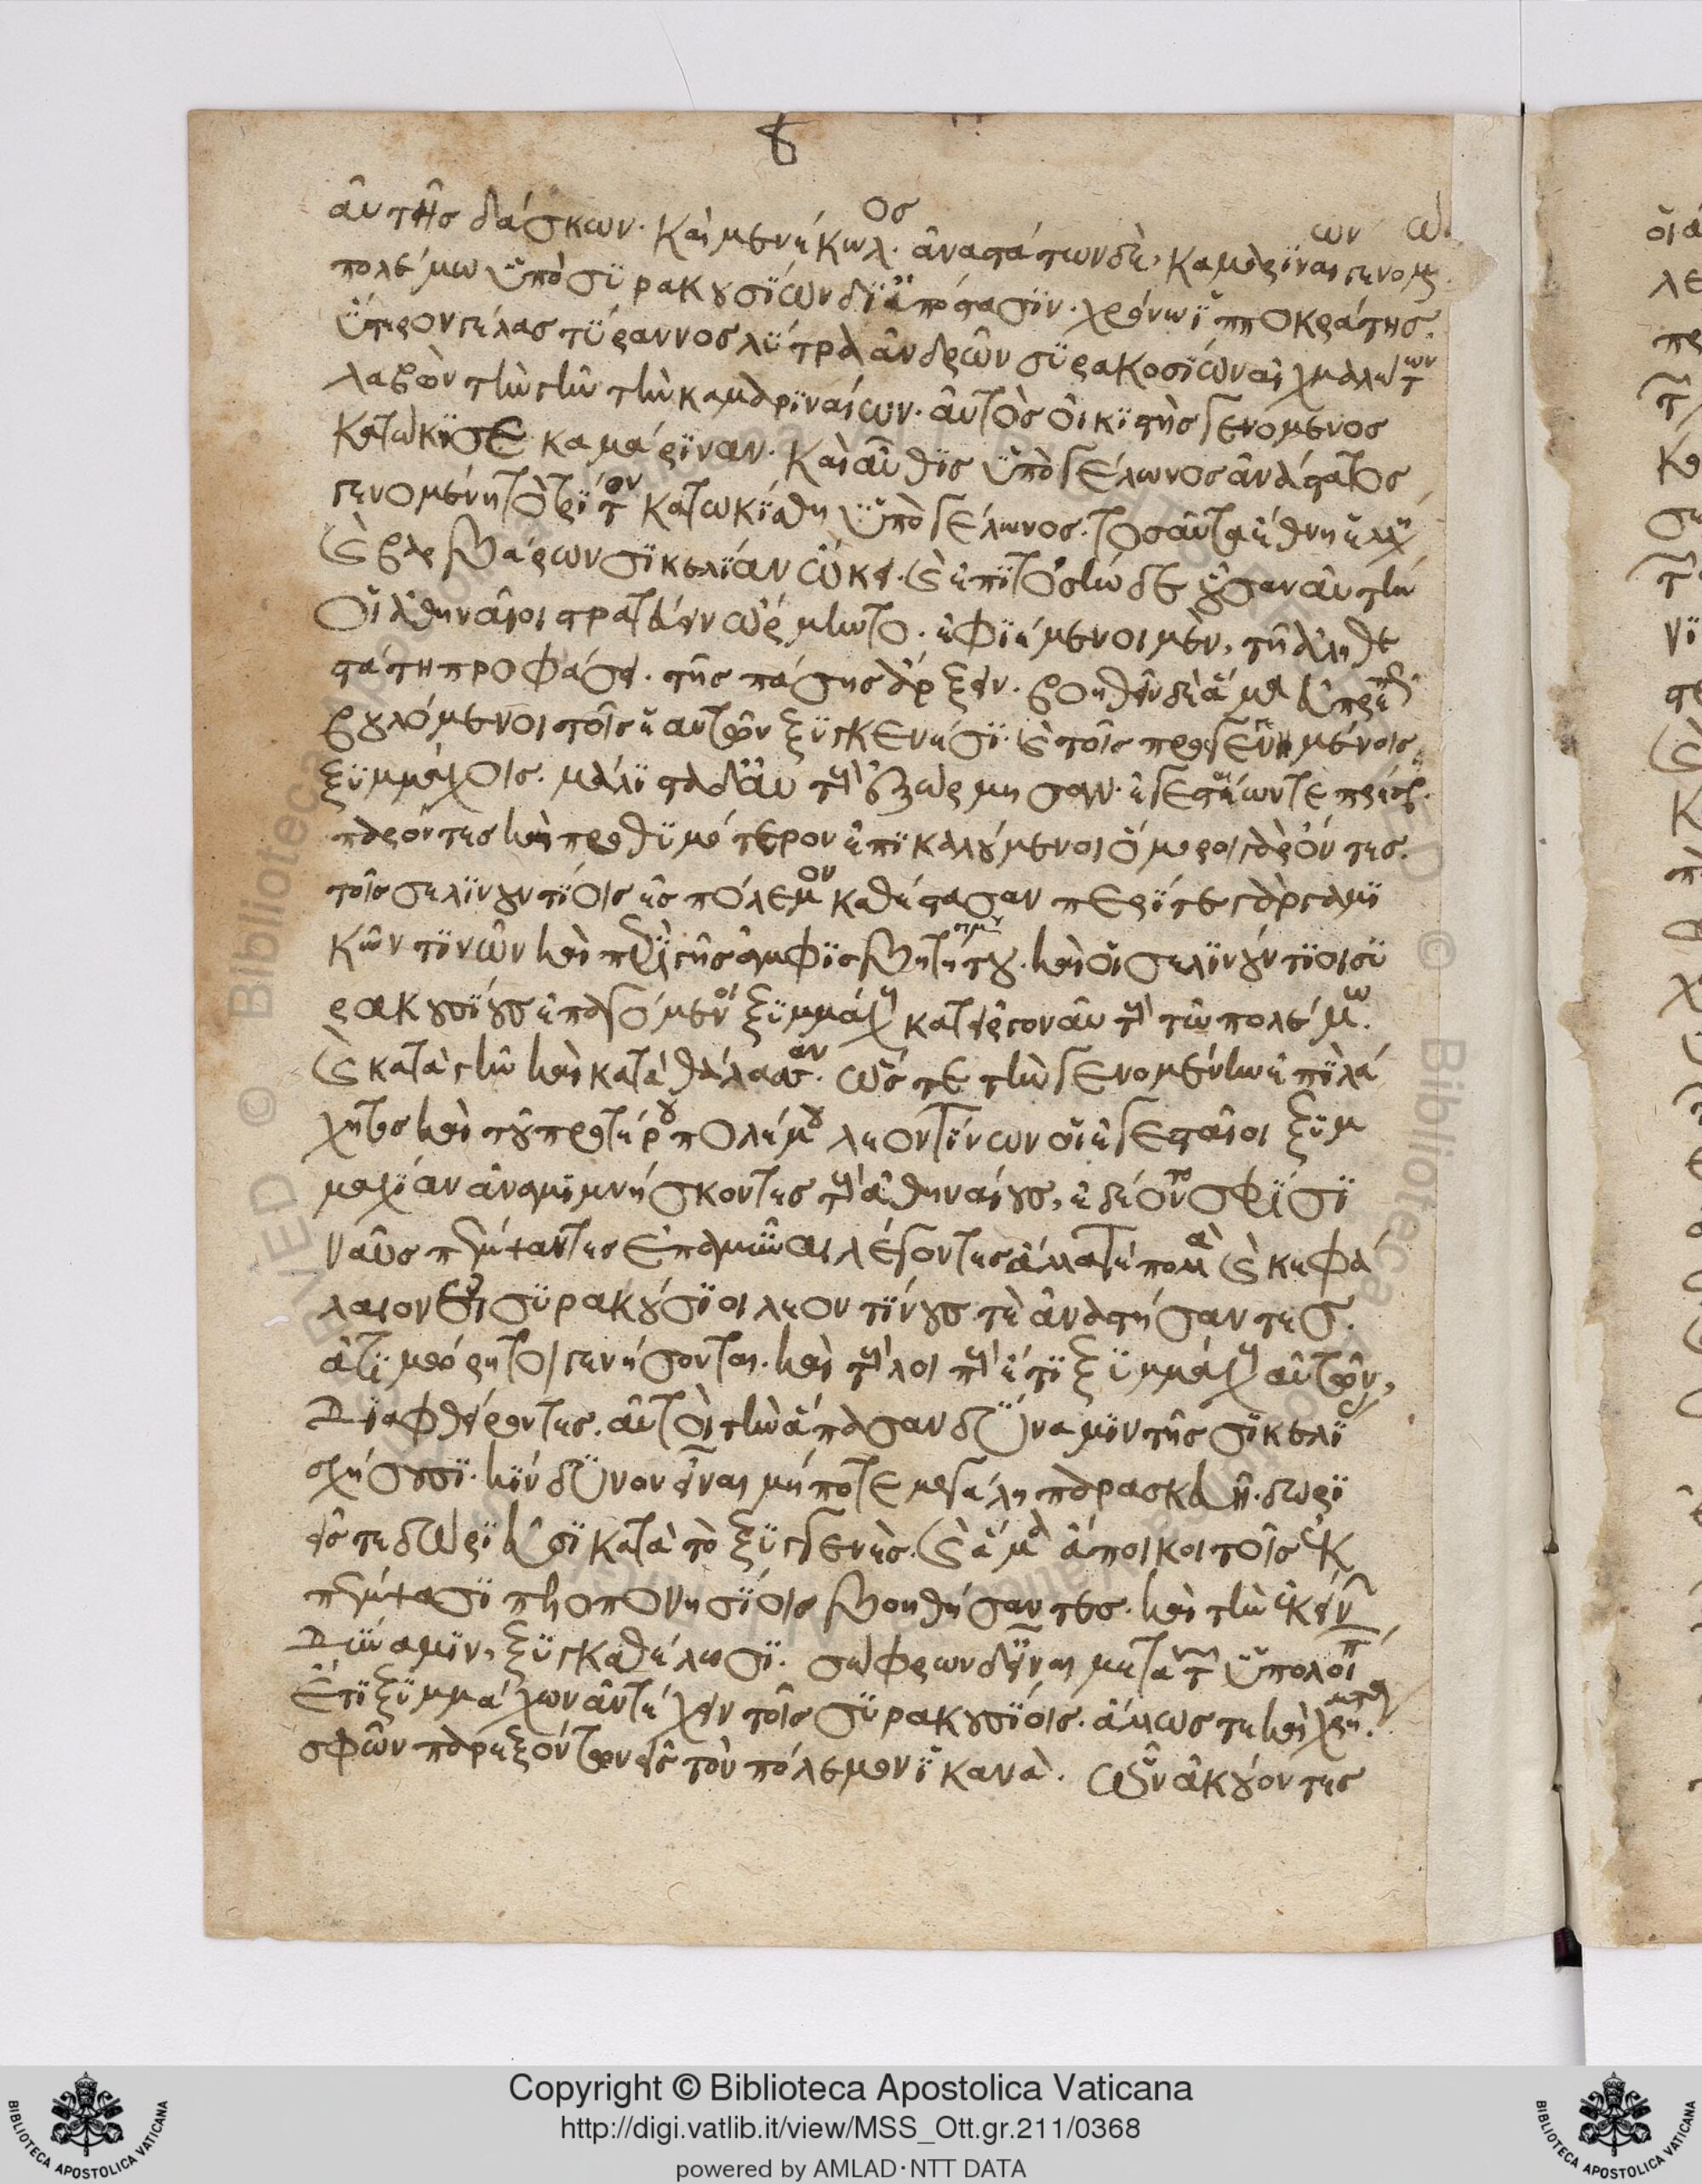 αὐτῆς δάσκων. καὶ μενέκωλος. ἀναστάτων δὲ, καμαριναίων γενομένων
πολέμω ὑπὸ συρακουσίων δι' ἀπόστασιν. χρόνω ἱπποκράτης
ὕστερον γέλας τύραννος λύτρα ἀνδρῶν συρακοσίων αἰχμαλώτων
λαβὼν τὴν γῆν τὴν καμαριναίων. αὐτὸς οἰκιστὴς γενόμενος
κατώκισε καμάριναν. καὶ αὖθις ὑπὸ γέλωνος ἀνάστατος
γενομένη τὸ τρίτον κατωκίσθη ὑπὸ γέλωνος. τοσαῦτα ἔθνη ἑλλή
καὶ βαρβάρων σικελίαν ὤκει. καὶ ἐπὶ τοσήνδε οὖσαν αὐτὴν
οἱ ἀθηναῖοι στρατεύειν ὥρμηντο. ἐφιέμενοι μὲν, τῆ ἀληθε
στάτη προφάσει. τῆς πάσης ἄρξειν. βοηθεῖν δὲ ἅμα εὐπρεπῶς
βουλόμενοι τοῖς ἑαυτῶν ξυγγενέσι. καὶ τοῖς προσγεγενημένοις
ξυμμάχοις. μάλιστα δ' αὐτοὺς ἐξώρμησαν. ἐγεσταίων τε πρέσβ.
παρόντες καὶ προθυμότερον ἐπικαλούμενοι ὅμοροι γὰρ ὄντες.
τοῖς σελινουντίοις ἐς πόλεμον καθέστασαν περί τε γὰρ γαμι
κῶν τινῶν καὶ περὶ γῆς ἀμφισβητήτου. καὶ οἱ σελινούντιοι συ
ρακουσίους ἐπαγόμενοι ξυμμάχους κατεῖργον αὐτοὺς τῶ πολέμω.
καὶ κατὰ γῆν καὶ κατὰ θάλασσαν. ὥστε τὴν γενομένην ἐπὶ λά
χητος καὶ τοῦ προτέρου πολέμου λεοντίνων οἱ ἐγεσταῖοι ξυμ
μαχίαν ἀναμιμνήσκοντες τοὺς ἀθηναίους, ἐδέοντο σφίσι
ναῦς πέμψαντες ἐπαμῦναι λέγοντες ἄλλα τὲ πολλὰ καὶ κεφά
λαιον εἰ συρακούσιοι λεοντίνους τὲ ἀναστήσαντες.
ἀτιμώρητοι γενήσονται. καὶ τοὺς λοιποὺς ἔτι ξυμμάχους αὐτῶν,
διαφθείροντες. αὐτοὶ τὴν ἅπασαν δύναμιν τῆς σικελί
σχήσουσι. κίνδυνον εἶναι μήποτε μεγάλη παρασκευῆ. δωρι
εῖς τε δωριεῦσι κατὰ τὸ ξυγγενὲς. καὶ ἅμα ἄποικοι τοῖς ἐκ
πέμψασι πελοποννησίοις βοηθήσαντες. καὶ τὴν ἐκείνων
δύναμιν, ξυγκαθέλωσι. σῶφρον δ' εἶναι μετὰ τῶν ὑπολοίπ
ἔτι ξυμμάχων ἀντέχειν τοῖς συρακουσίοις. ἄλλως τε καὶ χρήματα
σφῶν παρεξόντων ἐς τὸν πόλεμον ἱκανὰ. ὧν ἀκούοντες